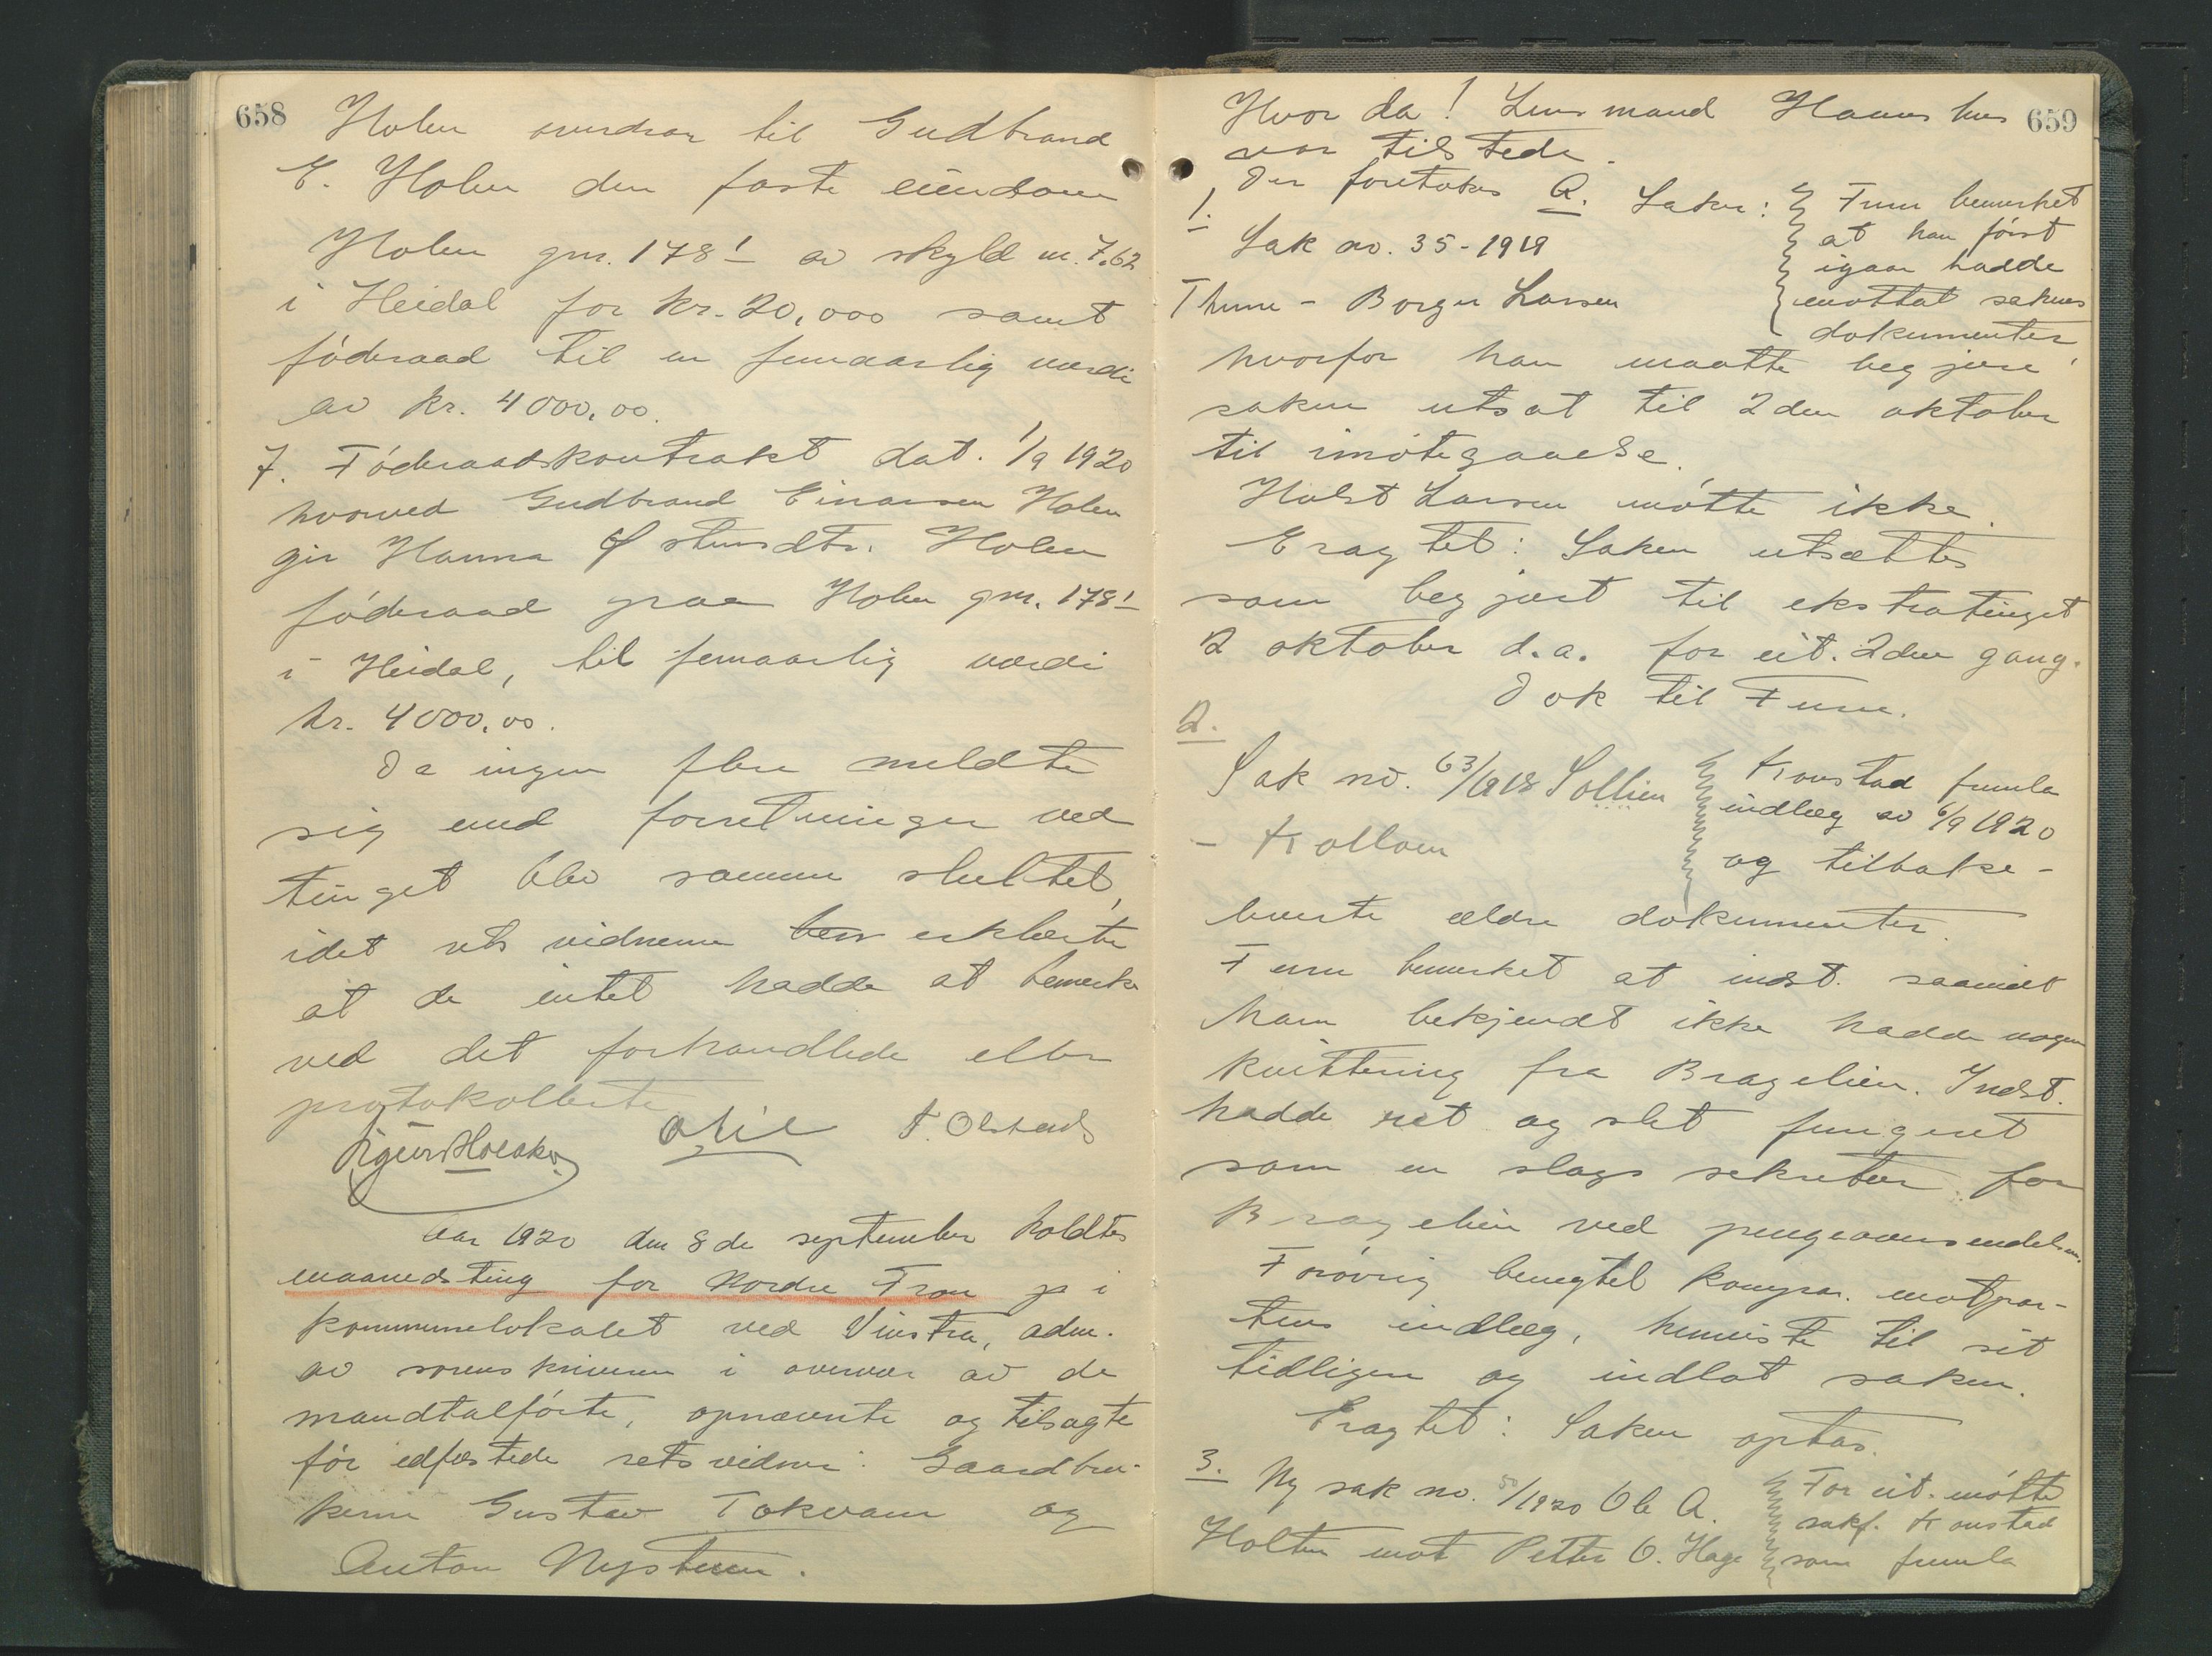 658
Holen overdrar til Gudbrand
E. Holen den faste eiendom
Holen gnr. 178¹ av skyld m. 7.62
i Heidal for kr. 20,000 samt
föderaad til en femaarlig værdi
av kr. 4000,00.
7. Föderaadskontrakt dat. 1/9 1920
hvorved Gudbrand Einarsen Holen
gir Hanna Østensdtr. Holen
föderaad paa Holen gnr. 178¹
i Heidal, til femaarlig værdi
kr. 4000,00.
Da ingen flere meldte
sig med forretninger ved
tinget blev samme sluttet,
idet rets vidnerne bem erklærte
at de intet hadde at bemerke
ved det forhandlede eller
protokollerte
O Lie T. Olstad
Aar 1920 den 8de september holdtes
maanedsting for Nordre Fron p i
kommunelokalet ved Vinstra, adm.
av sorenskriveren i overvær av de
mandtalförte, opnævnte og tilsagte
för edfæstede retsvidner: Gaardbru-
kerne Gustav Tokvam og
Anton Nysteen.
659
Hvor da! Lensmand Haans hus
var tilstede.
Der foretokes A. Saker:
1.
Sak no. 35-1919
Thune - Borger Larsen
Furu bemerket
at han först
igaar hadde
mottat sakens
dokumenter,
hvorfor han maatte begjære
saken utsat til 2den oktober
til imötegaaelse.
Holst Larsen mötte ikke.
Eragtet: Saken utsættes
som begjært til ekstratinget
2 oktober d.a. for cit. 2den gang.
Dok til Furu.
2.
Sak no. 63/1918 Sollien
- Kollom
Konstad fremla
indlæg av 6/9 1920
og tilbake-
leverte ældre dokumenter.
Furu bemerket at indst. saavidt
ham bekjendt ikke hadde nogen
kvittering fra Bragelien. Indst.
hadde ret og slet fungert
som en slags sekretær for
Bragelien ved pengeoversendelsen.
Forövrig benegtet kompar. motpar-
tens indlæg, henviste til sit
tidligere og indlot saken.
Eragtet: Saken optas.
3. Ny sak no. 50/1920 Ole A.
Holten mot Petter O. Hage
For cit. mötte
sakf. Konstad
som fremla